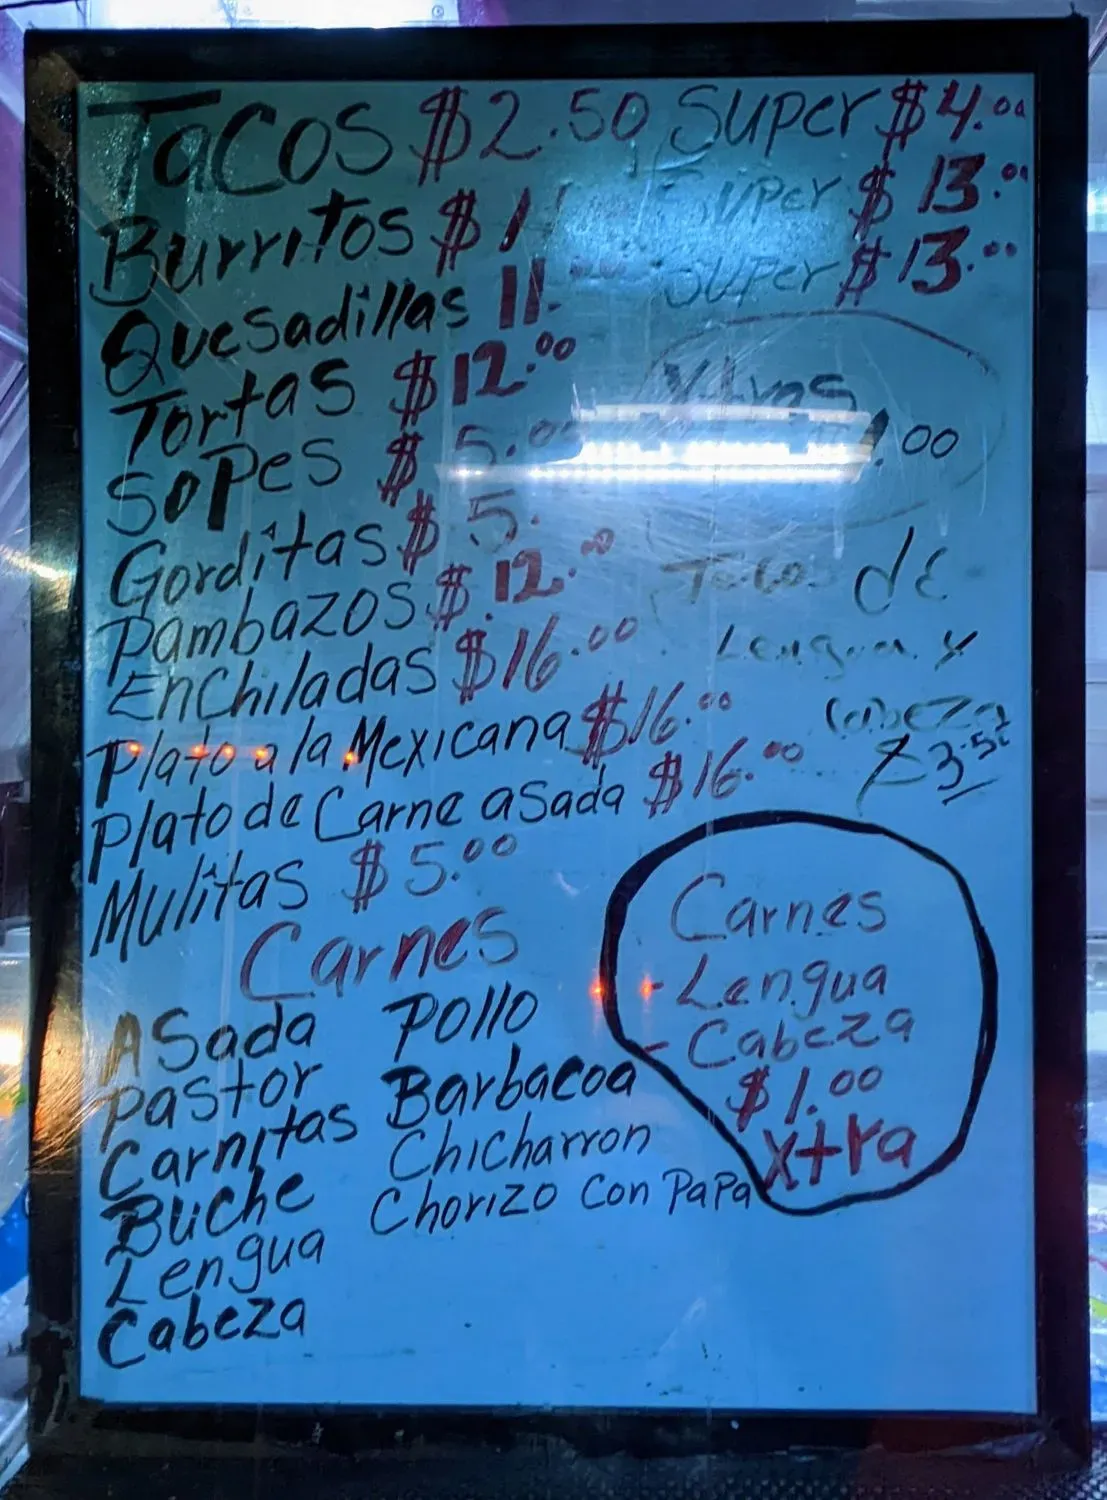 Tacos $2.50 Super $4.00
Burritos $11 Super $13.00
Quesadillas 11.00 Super $13.00
Tortas $12.00
Sopes $5.00
Gorditas $5.
Pambazos $12.00
Enchiladas $16.00
Plato a la Mexicana $16.00
Plato de Carne asada $16.00
Mulitas $5.00
Xtras
1.00
Tacos de
Lengua y
Cabeza
$3.50
Carnes
Asada Pollo
Pastor Barbacoa
Carnitas Chicharron
Buche Chorizo Con PaPa
Lengua
Cabeza
Carnes
-Lengua
-Cabeza
$1.00
Xtra